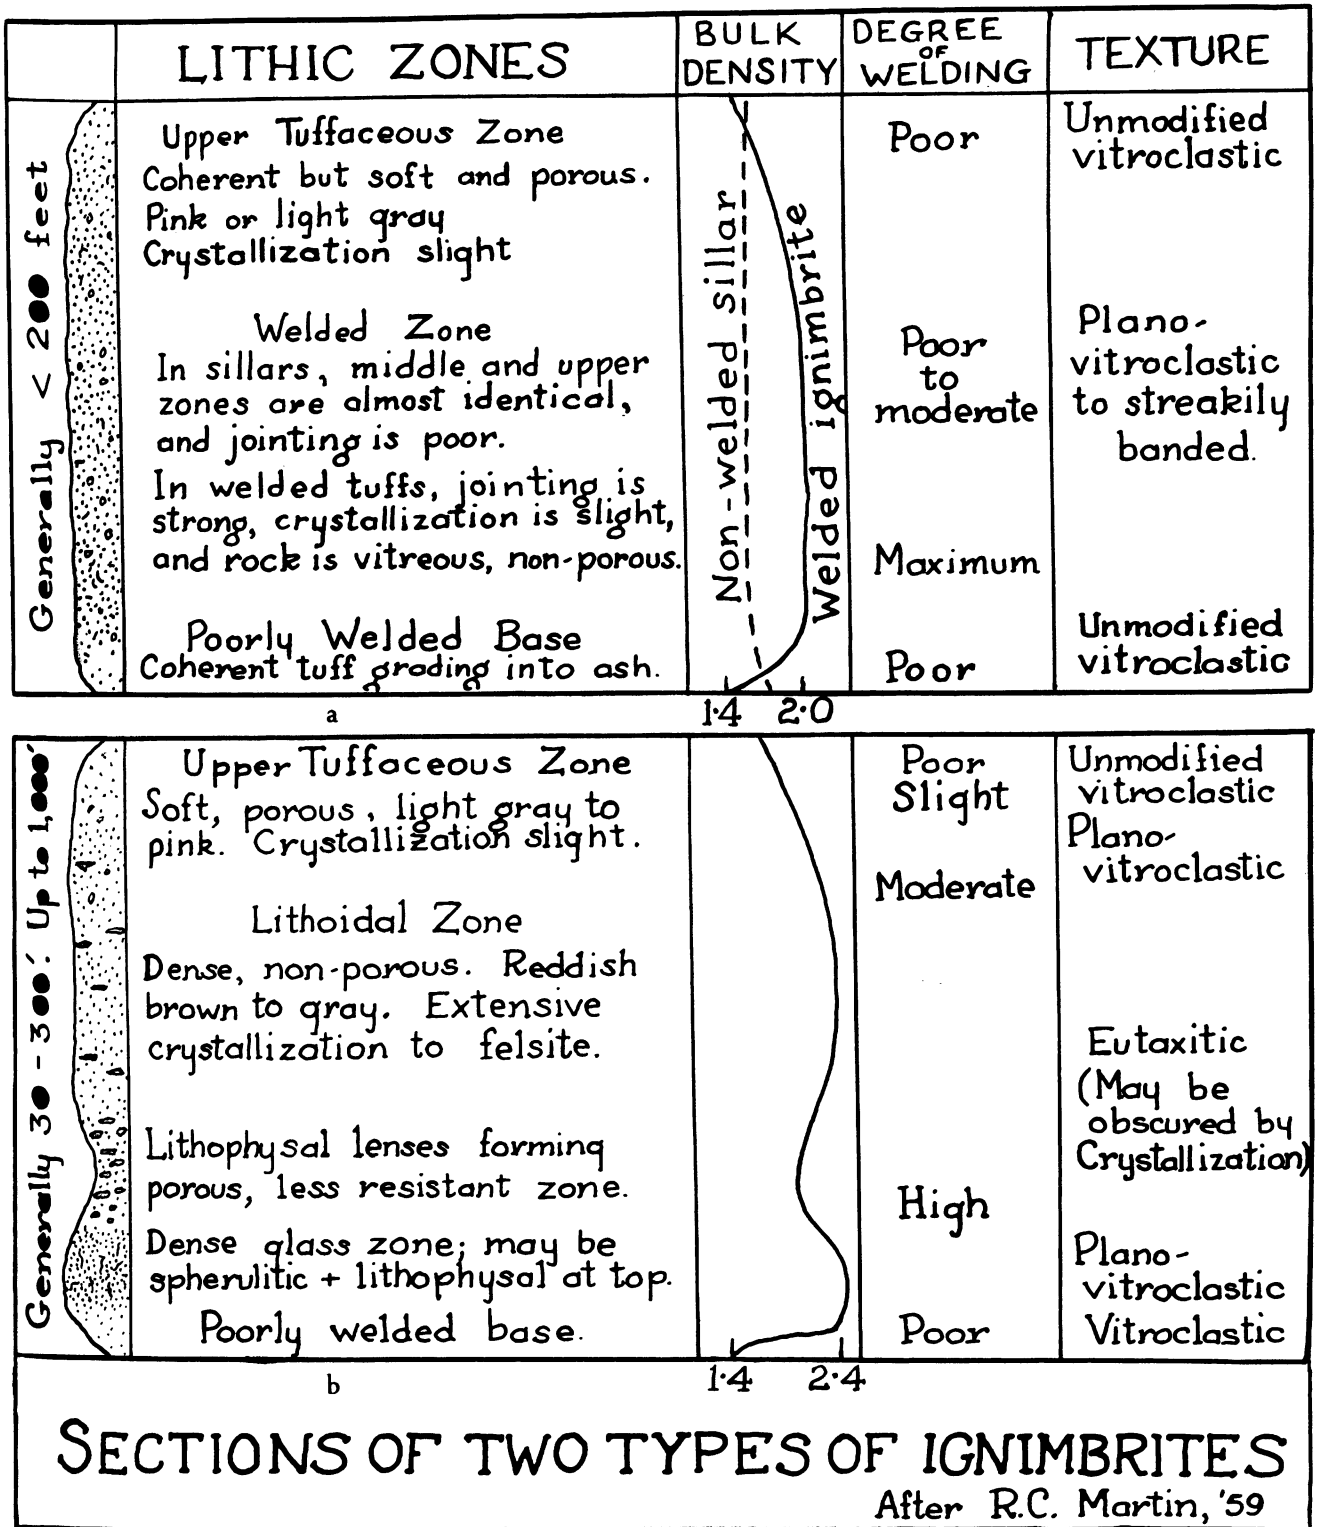 LITHIC ZONES
BULK
DENSITY
DEGREE
OF
WELDING
TEXTURE
Generally < 200 feet
Upper Tuffaceous Zone
Coherent but soft and porous.
Pink or light gray
Crystallization slight
Welded Zone
In sillars, middle and upper
zones are almost identical,
and jointing is poor.
In welded tuffs, jointing is
strong, crystallization is slight,
and rock is vitreous, non-porous.
Poorly Welded Base
Coherent tuff grading into ash.
Non-welded sillar
Welded ignimbrite
Poor
Poor
to
moderate
Maximum
Poor
Unmodified
vitroclastic
Plano-
vitroclastic
to streakily
banded.
Unmodified
vitroclastic
a
1·4 2·0
Generally 30-300'. Up to 1,000'
Upper Tuffaceous Zone
Soft, porous, light gray to
pink. Crystallization slight.
Lithoidal Zone
Dense, non-porous. Reddish
brown to gray. Extensive
crystallization to felsite.
Lithophysal lenses forming
porous, less resistant zone.
Dense glass zone; may be
spherulitic + lithophysal at top.
Poorly welded base.
Poor
Slight
Moderate
High
Poor
Unmodified
vitroclastic
Plano-
vitroclastic
Eutaxitic
(May be
obscured by
Crystallization)
Plano-
vitroclastic
Vitroclastic
b
1·4 2·4
SECTIONS OF TWO TYPES OF IGNIMBRITES
After R.C. Martin, '59